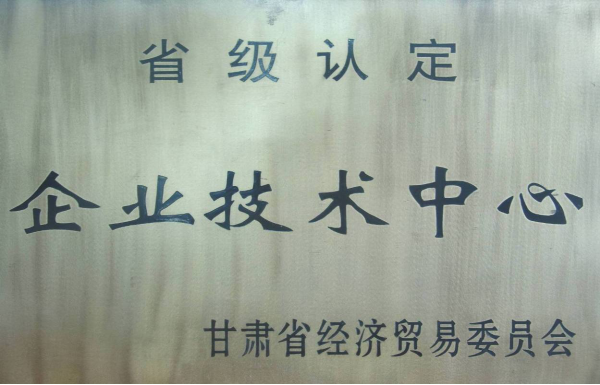 省级认定
企业技术中心
甘肃省经济贸易委员会